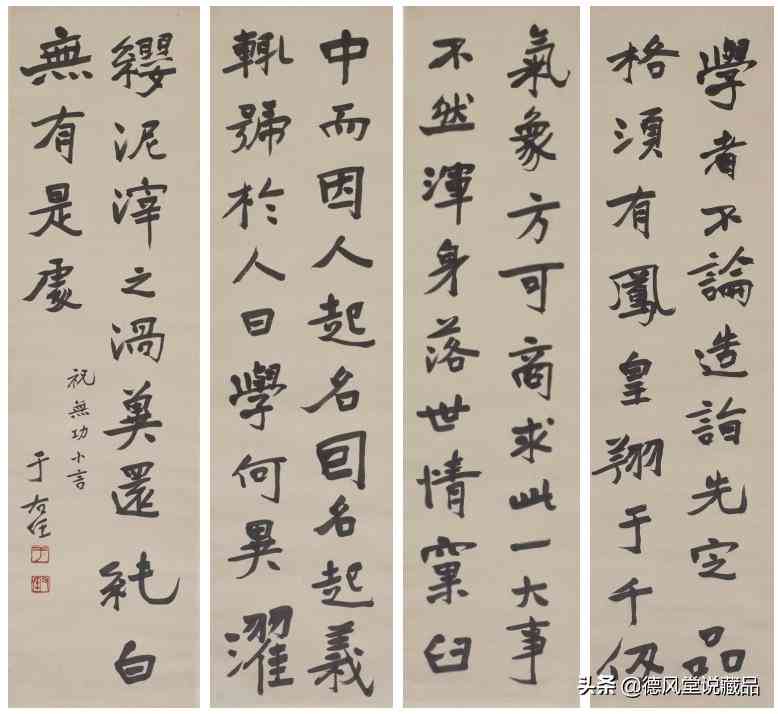 學者不論造詣先定品
格須有鳳皇翔于千仞
氣象方可商求此一大事
不然渾身落世情窠臼
中而因人起名囙名起義
輒號於人曰學何異濯
纓泥滓之渦冀還純白
無有是處
祝無功小言
于右任
头条 @德风堂说藏品